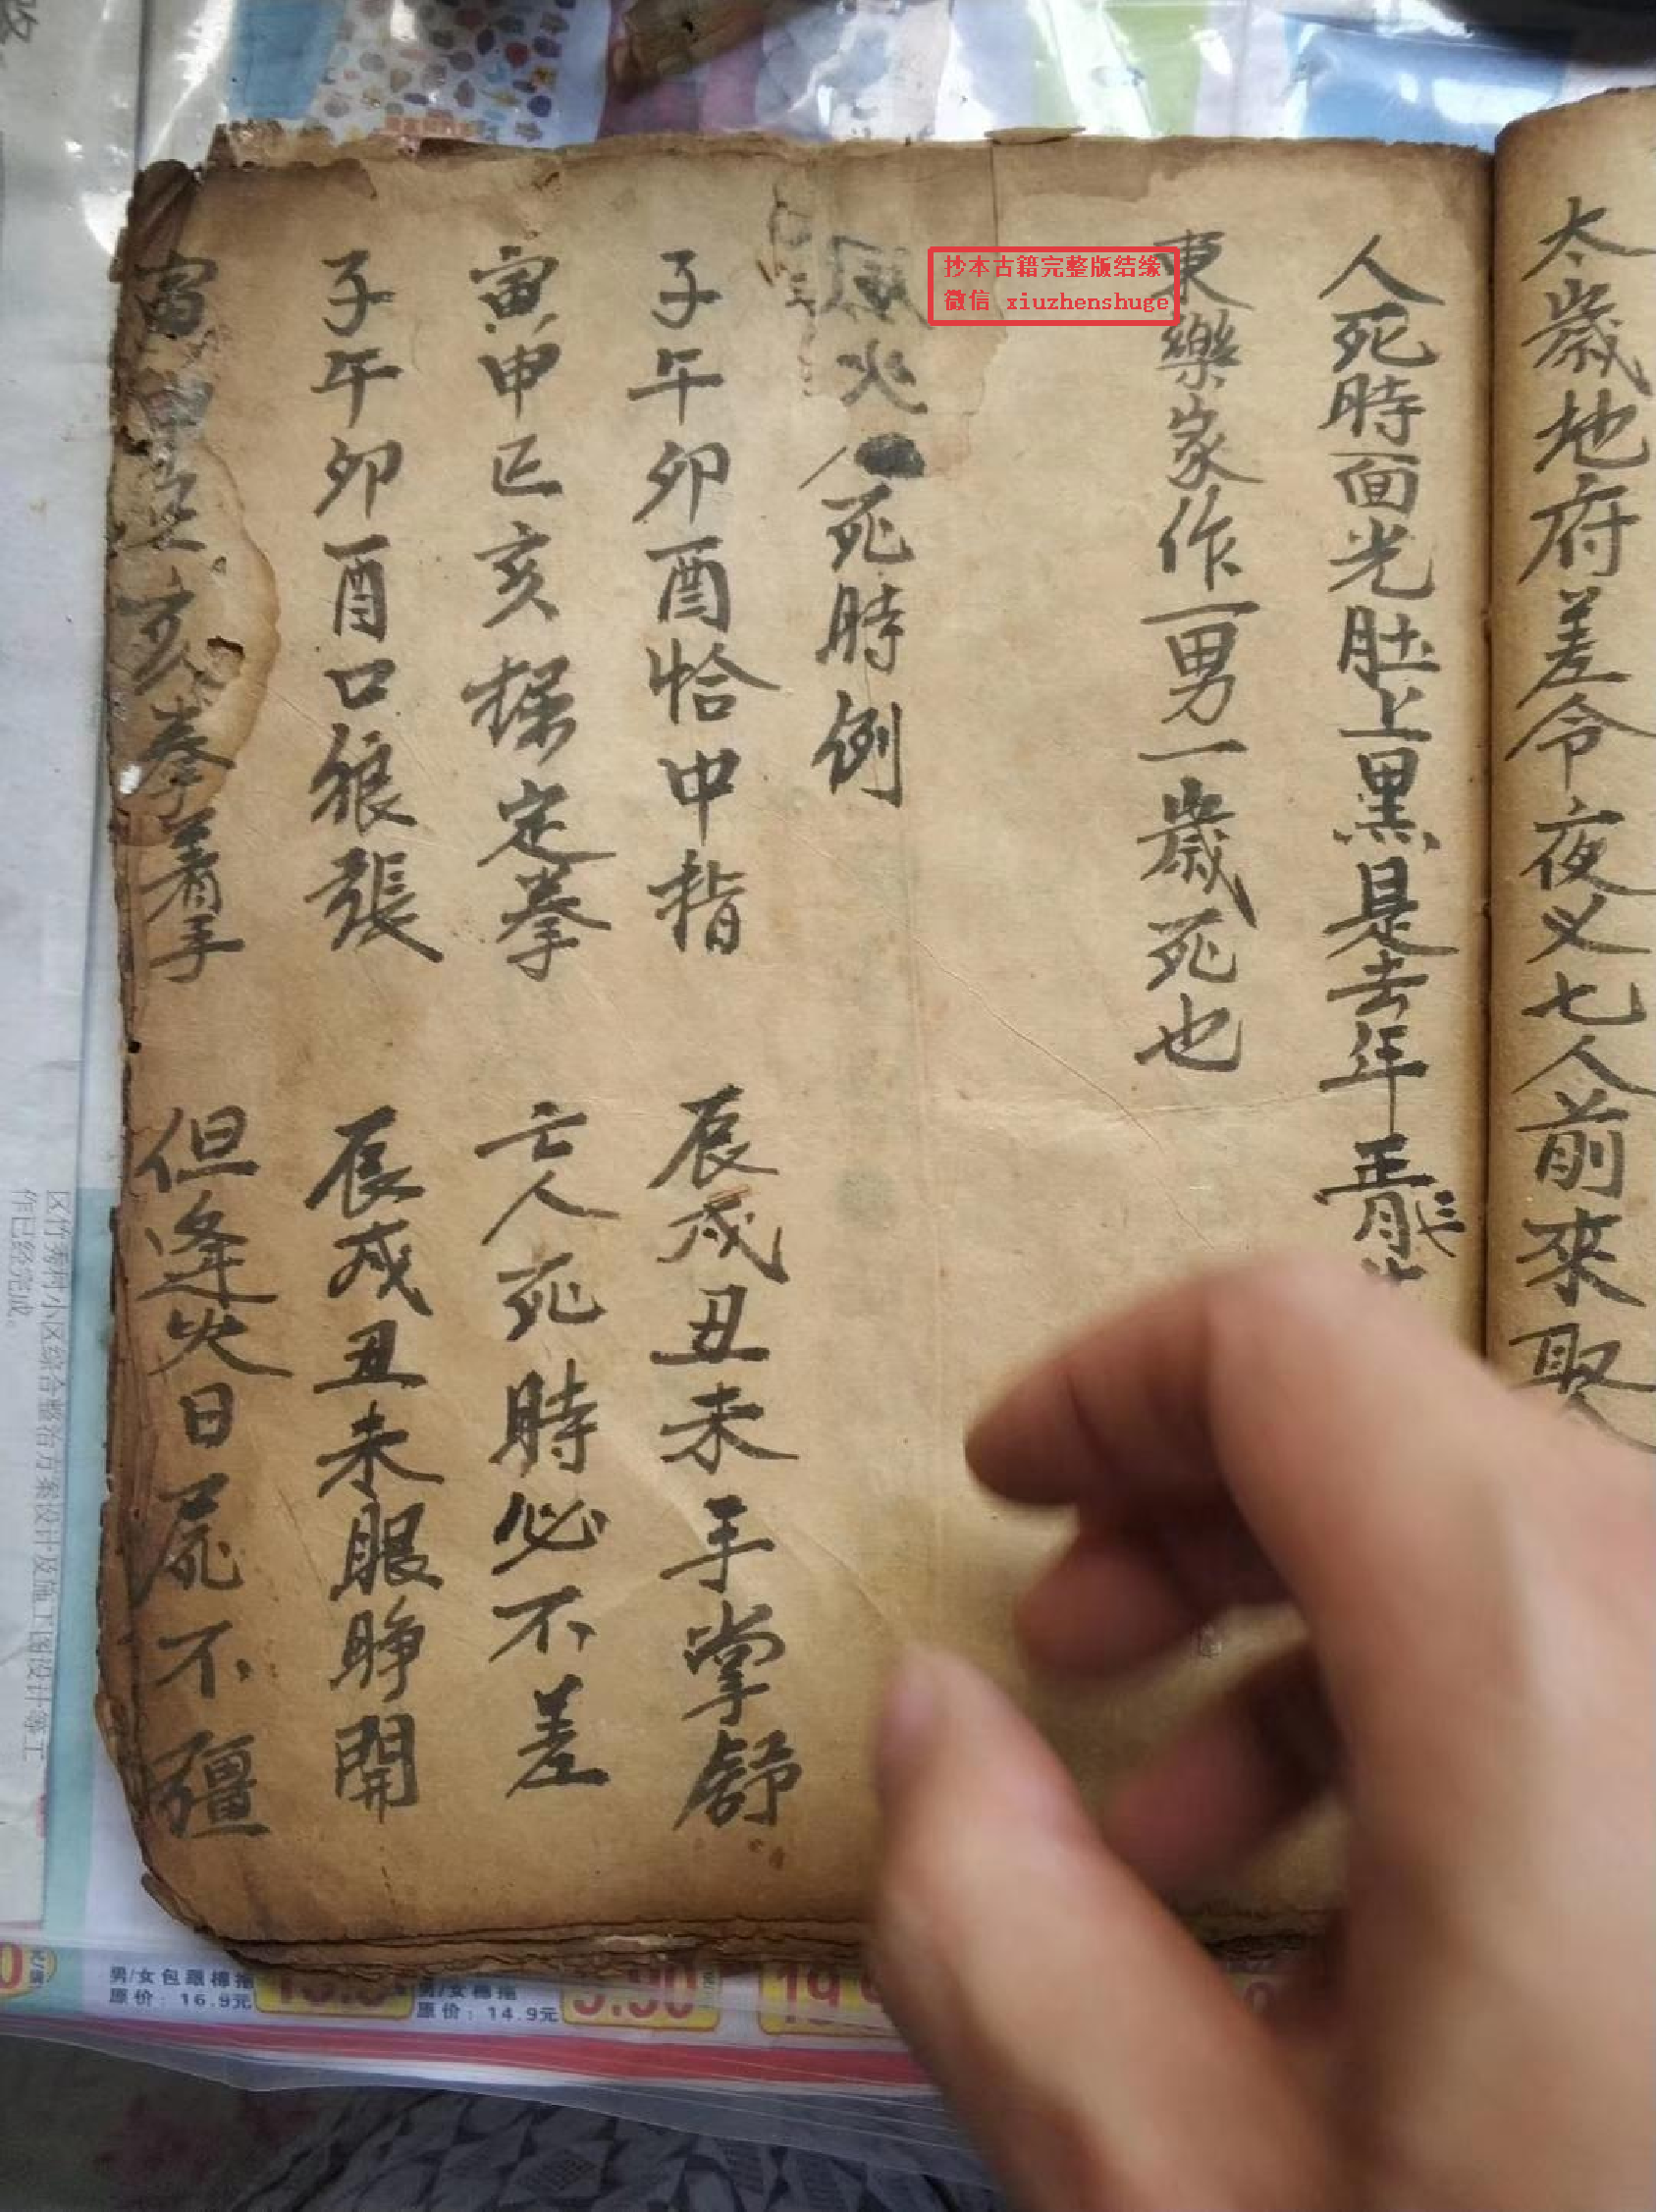 太歲地府差令夜义七人前來取
人死時面光肚上黑是去年
東樂家作一男一歲死也
火人死時例
子午卯酉恰中指 辰戍丑未手掌舒
寅申巳亥 定拳 亡人死時必不差
子午卯酉口狼張 辰戍丑未眼睁開
寅 亥拳着手 但逢火日屍不殭
抄本古籍完整版结缘
微信 xiuzhenshuge
区竹秀村小区综合整治方案设计及施工图设计等工
作已经完成。
男/女包跟棉拖
原价：16.9元
男/女棉拖
原价：14.9元
9.90